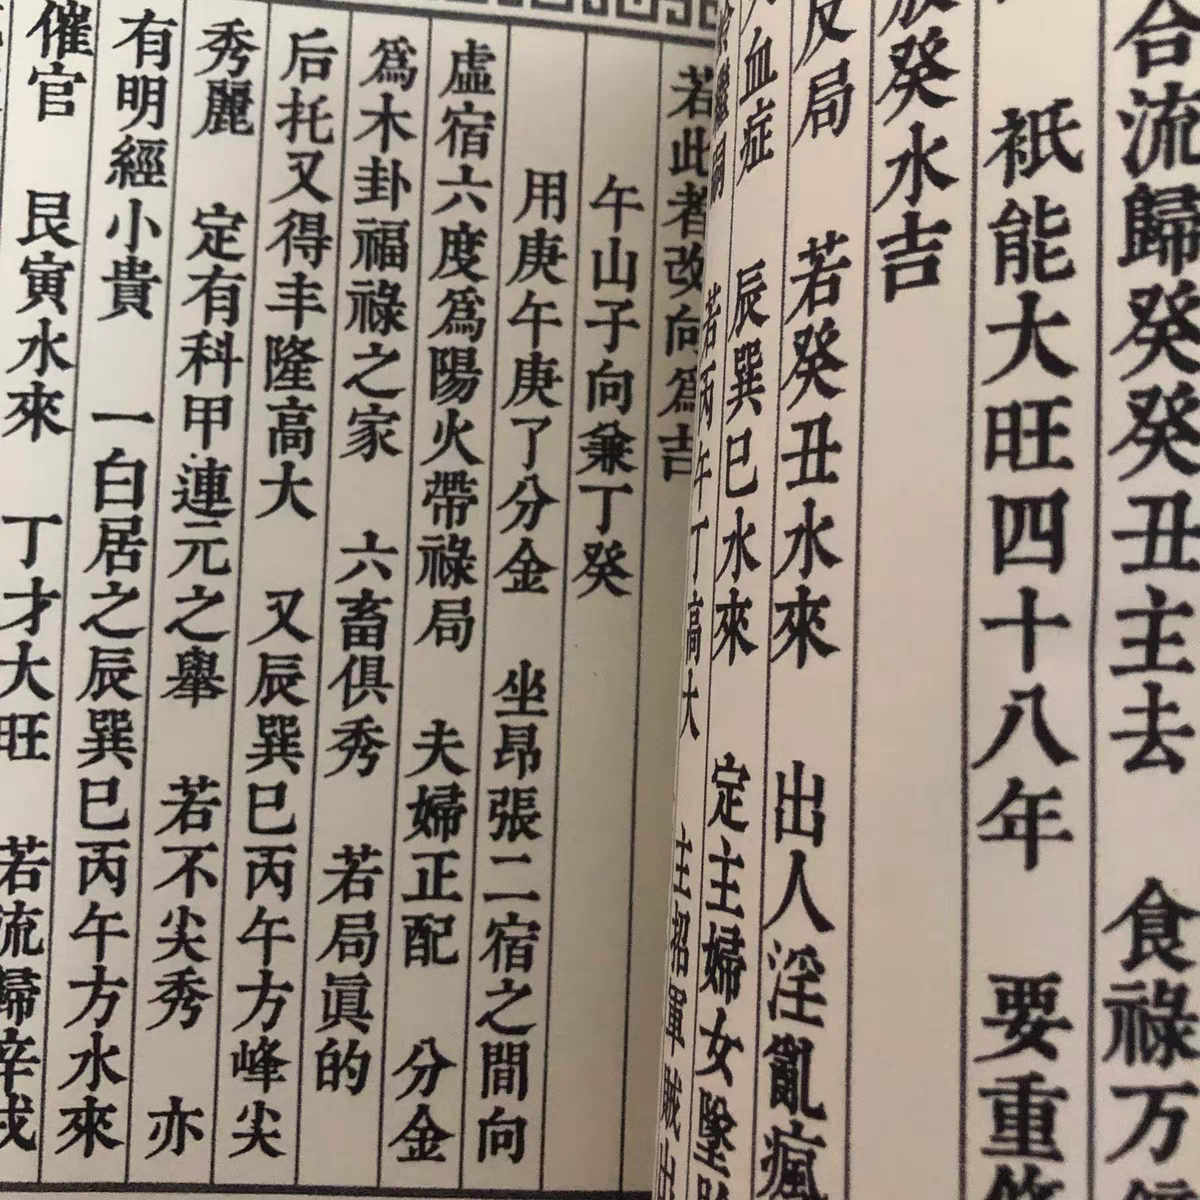 合流歸癸癸丑主去 食祿万
衹能大旺四十八年 要重
癸水吉
反局 若癸丑水來 出人淫亂瘋
血症 辰巽巳水來 定主婦女墜
若丙午丁高大 主招軍賊
若此者改向爲吉
午山子向兼丁癸
用庚午庚了分金 坐昂張二宿之間向
虛宿六度爲陽火帶祿局 夫婦正配 分金
爲木卦福祿之家 六畜俱秀 若局眞的
后托又得丰隆高大 又辰巽巳丙午方峰尖
秀麗 定有科甲連元之舉 若不尖秀 亦
有明經小貴 一白居之辰巽巳丙午方水來
催官 艮寅水來 丁才大旺 若流歸辛戌